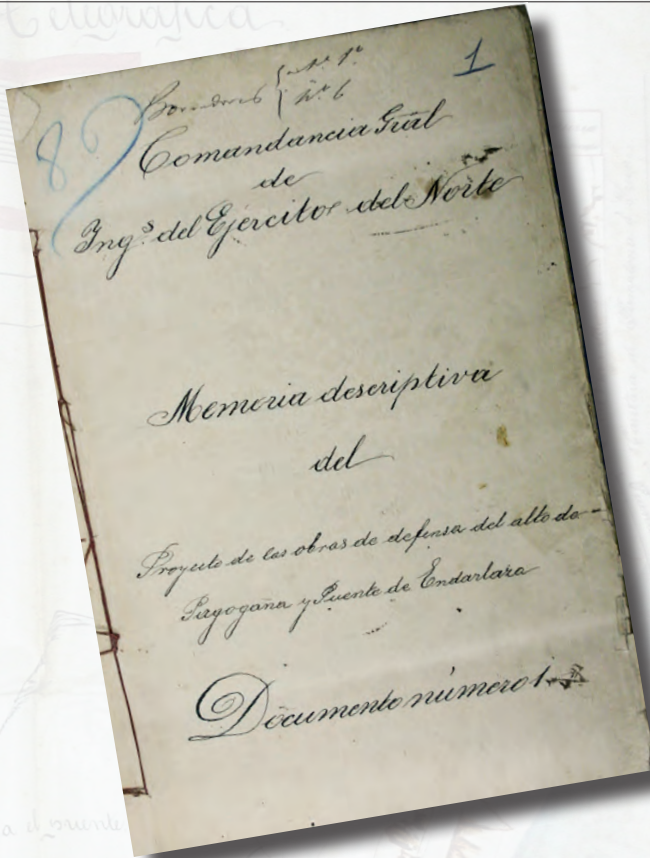 Telegráfica
1
nº 6
82
Comandancia Gral
de
Ing.s del Ejercito del Norte
Memoria descriptiva
del
Proyecto de las obras de defensa del alto de
Piryogaña y Puente de Endarlaza
Documento número 1